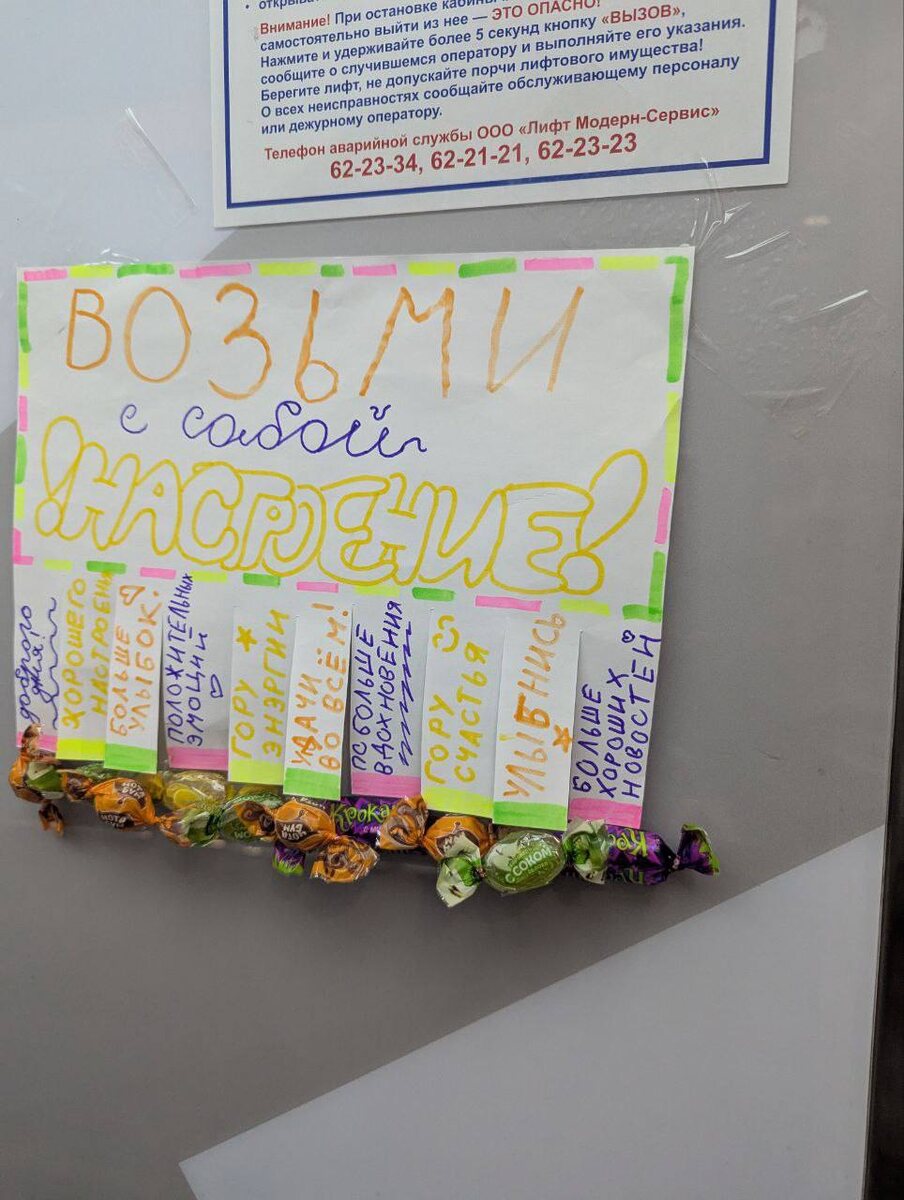 Внимание! При остановке кабины
самостоятельно выйти из нее — ЭТО ОПАСНО!
Нажмите и удерживайте более 5 секунд кнопку «ВЫЗОВ»,
сообщите о случившемся оператору и выполняйте его указания.
Берегите лифт, не допускайте порчи лифтового имущества!
О всех неисправностях сообщайте обслуживающему персоналу
или дежурному оператору.
Телефон аварийной службы ООО «Лифт Модерн-Сервис»
62-23-34, 62-21-21, 62-23-23
ВОЗЬМИ
с сабой
!НАСТРОЕНИЕ!
доброго
дня!
ХОРОШЕГО
НАСТРОЕНИ
БОЛЬШЕ
УЛЫБОК.
ПОЛОЖИТЕЛЬНЫХ
ЭМОЦИЙ
ГОРУ
ЭНЭРГИИ
УДАЧИ
ВО ВСЁМ!
ПОБОЛЬШЕ
ВДОХНОВЕНИЯ
ГОРУ
СЧАСТЬЯ
УЛЫБНИСЬ
БОЛЬШЕ
ХОРОШИХ
НОВОСТЕЙ
Крока